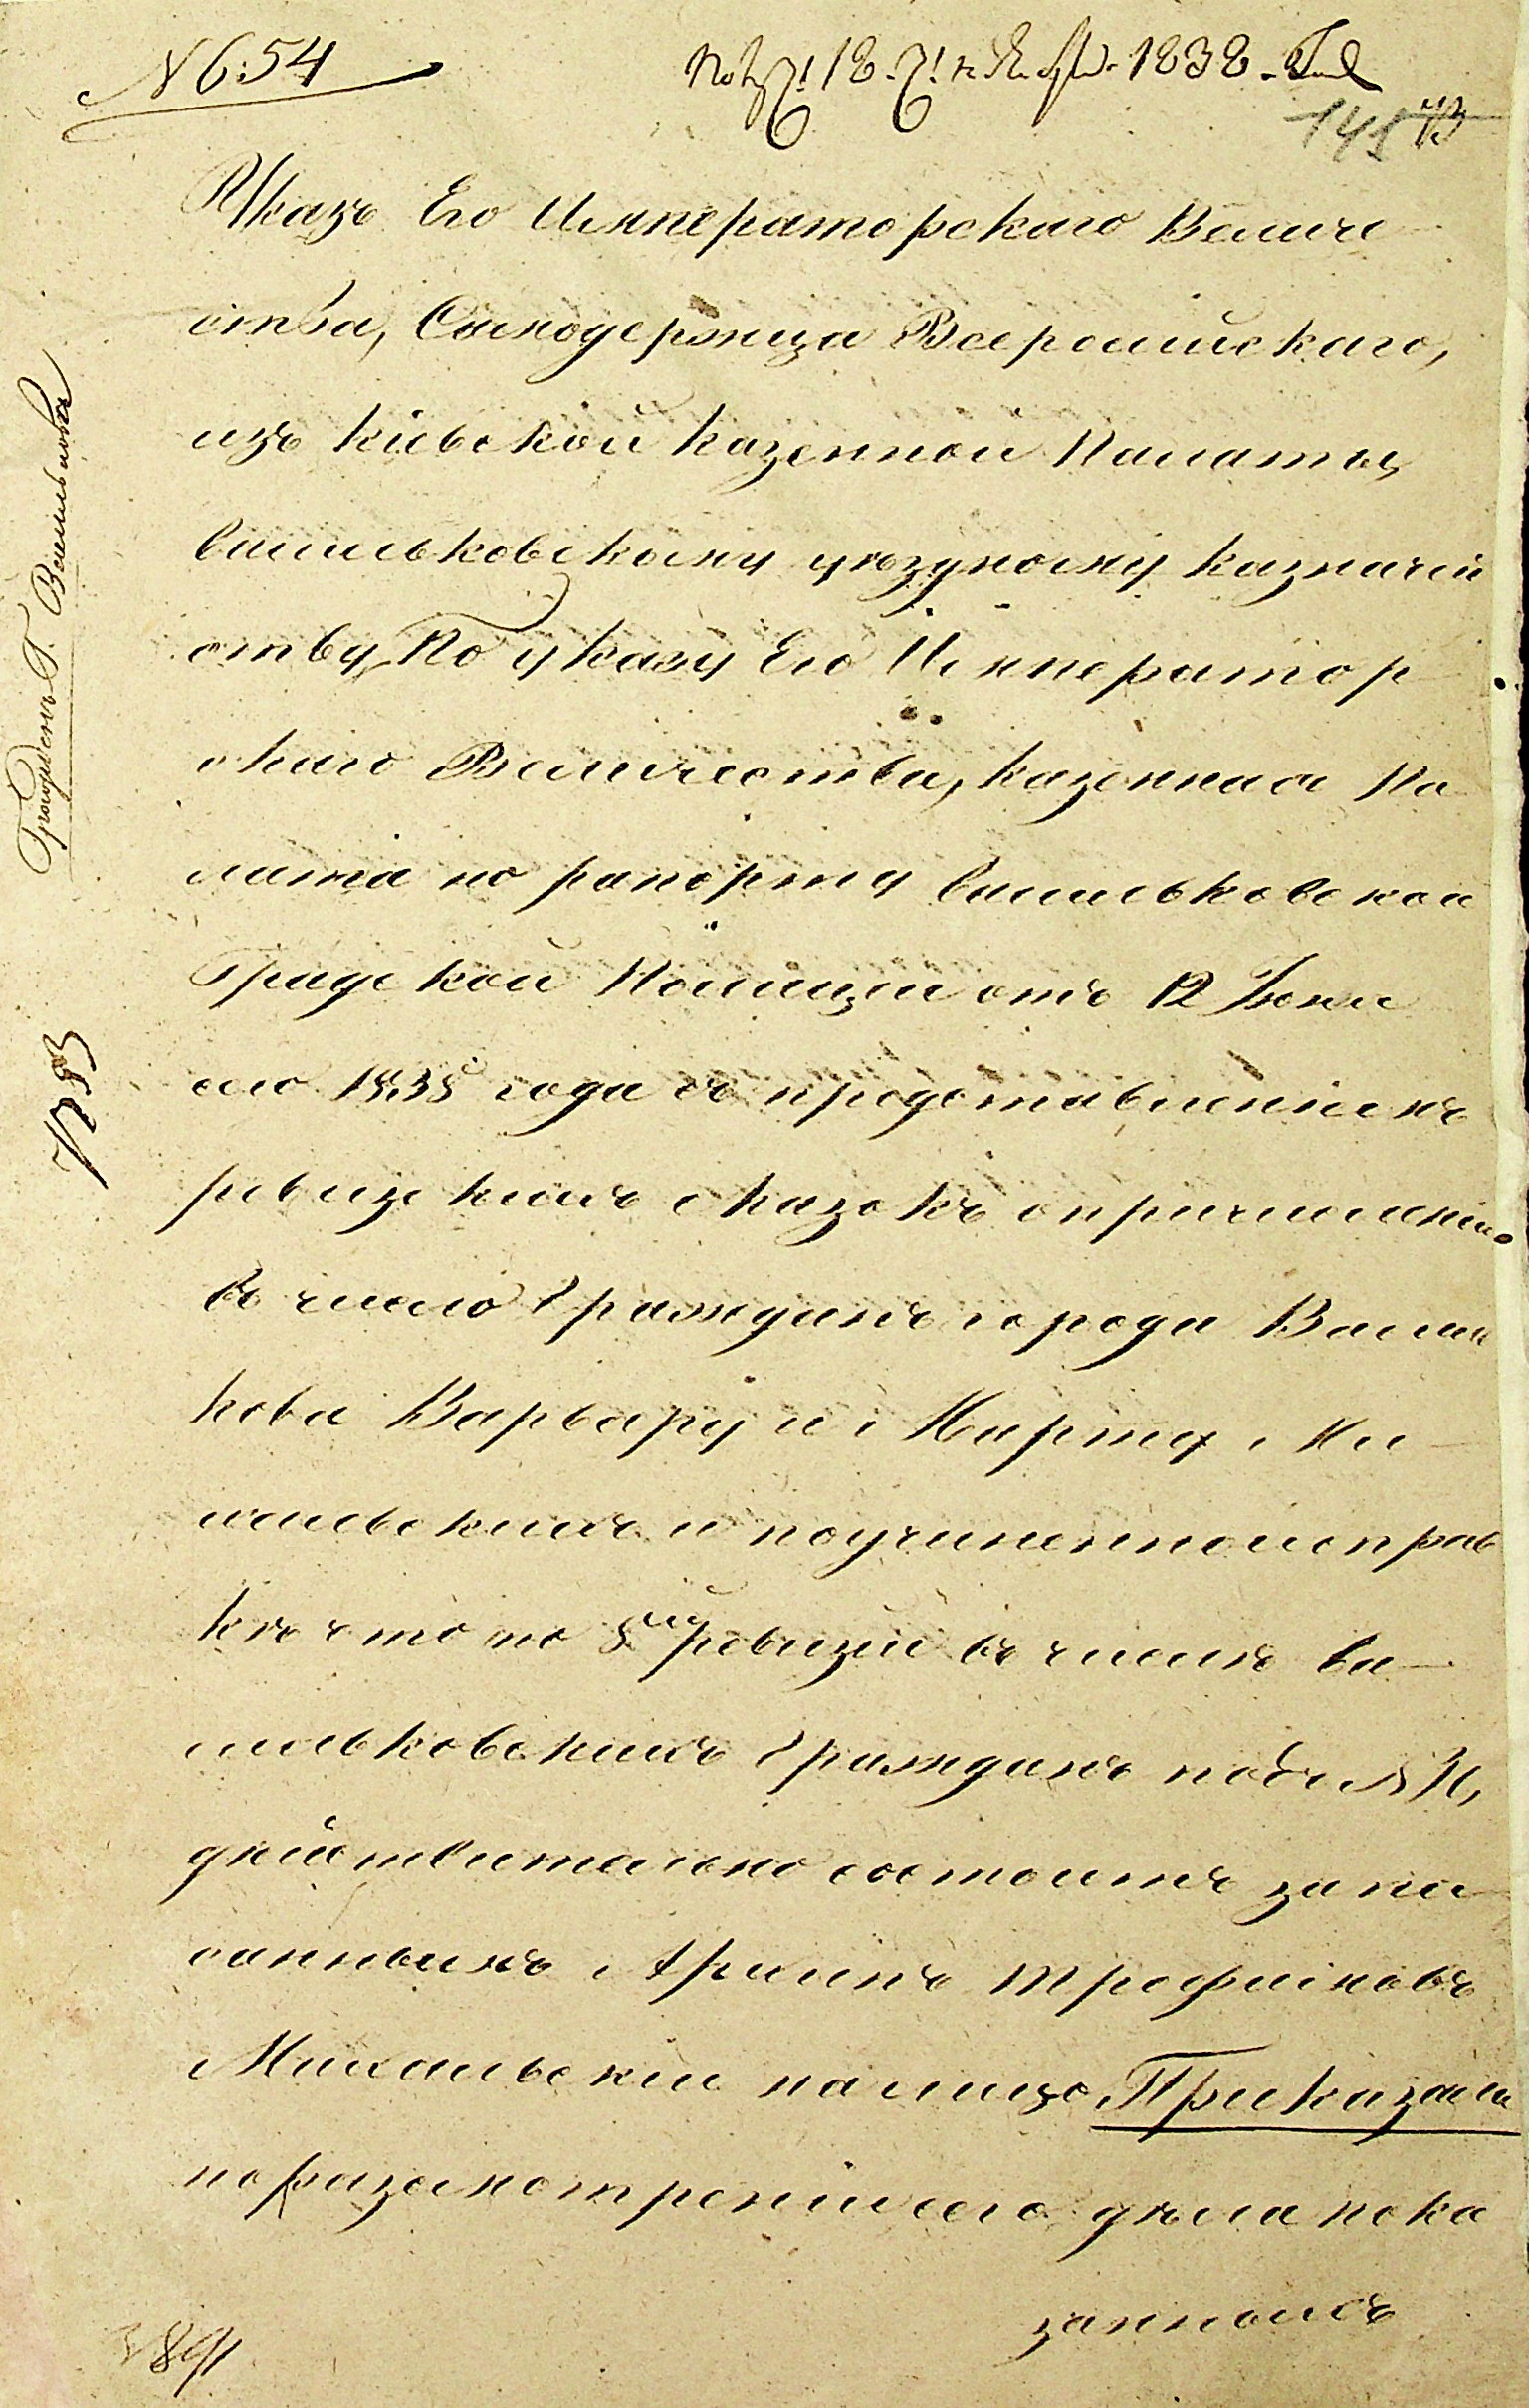 N 6:54
1838
145
Указъ Его Императорскаго Величе
ства, Самодержца Всероссійскаго,
изъ кіевской казенной Палаты,
васильковскому уездному казначей
ству, По указу Его Император
скаго Величества, казенная Па
лата по рапорту васильковской
Градской Полиціи отъ 12 Іюня
сего 1838 года съ представленіемъ
ревизскихъ сказокъ о причисленіи
въ число Гражданъ города Василь
кова Варвару и Марту Ми
хальскихъ и поучиненной справ
кѣ что по 8й ревизіи въ числе ва
сильковскихъ Гражданъ подъ N
дѣйствительно состоитъ запи
саннымъ Трофимовъ
Михальскій налицо, Приказали
поразсмотреніи сего дѣла пока
занныхъ
Гражданъ Г. Василькова
7283
3891